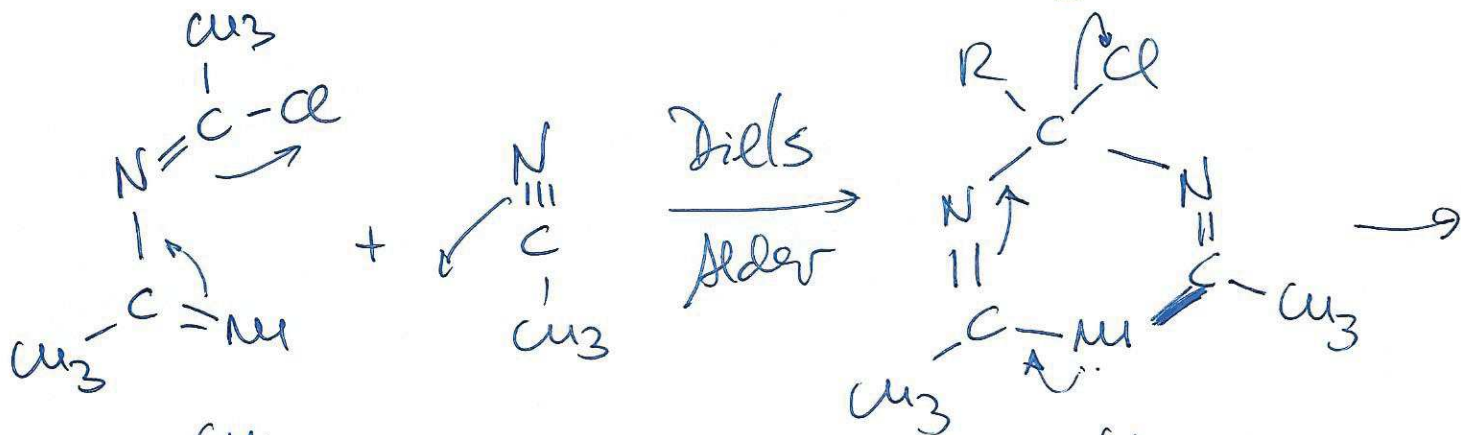 CH3
C-Cl
N
C
NH
CH3
+
N
C
CH3
Diels
Alder
R
Cl
C
N
N
C
CH3
C-NH
CH3